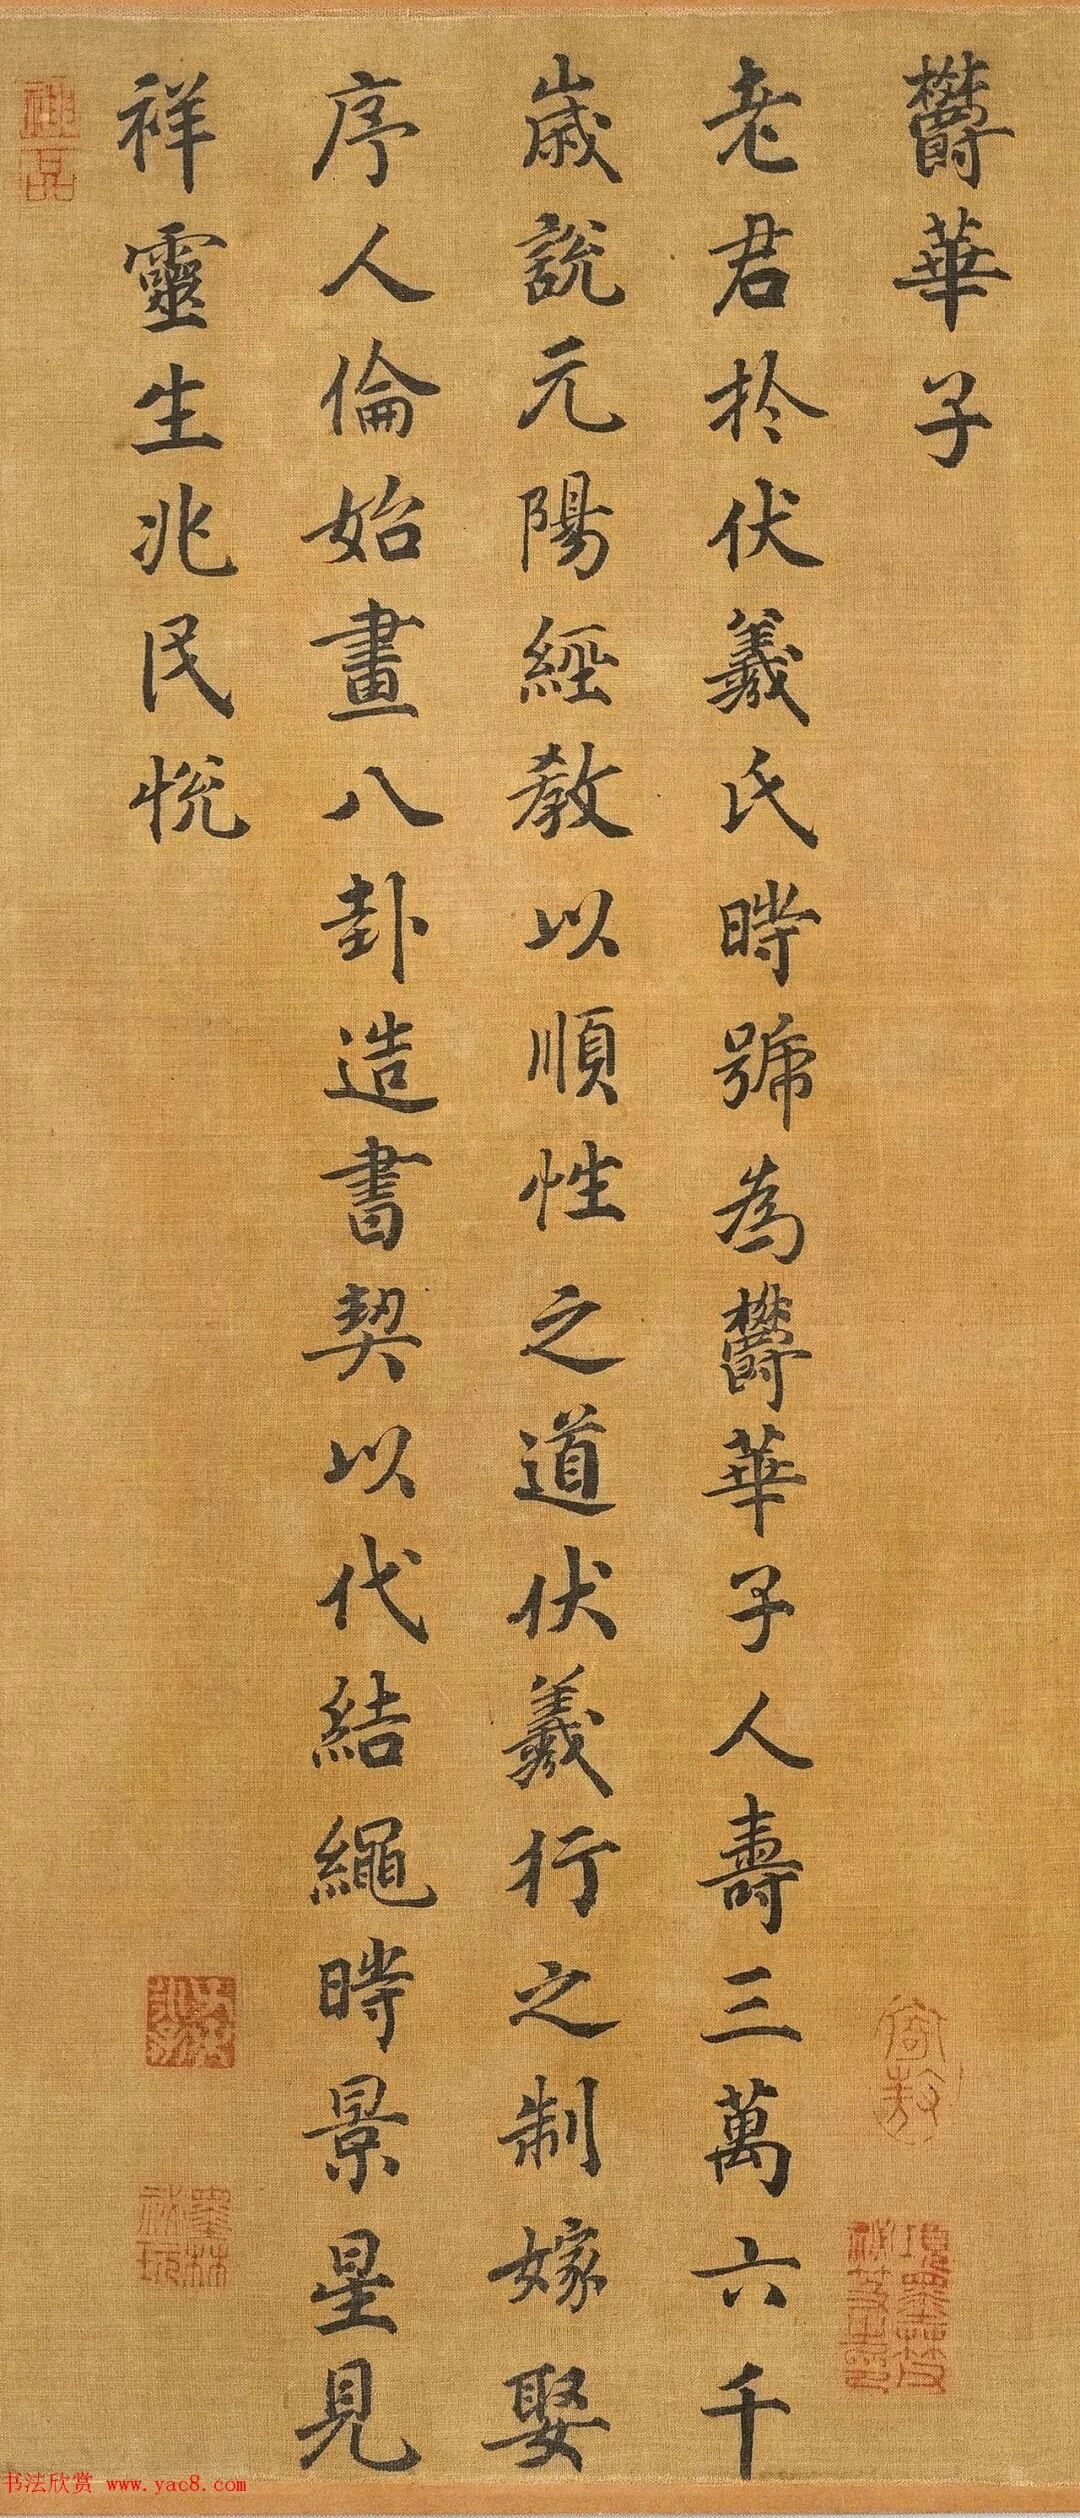 欝華子
老君於伏羲氏時號為欝華子人壽三萬六千
歲說元陽經教以順性之道伏羲行之制嫁娶
序人倫始畫八卦造書契以代結繩時景星見
祥靈生兆民悅
神品
項墨林父秘笈之印
墨林秘玩
书法欣赏 www.yac8.com